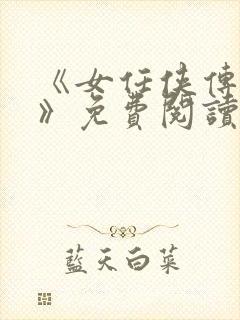 《女任侠傳
》免費閱讀
藍天白菜